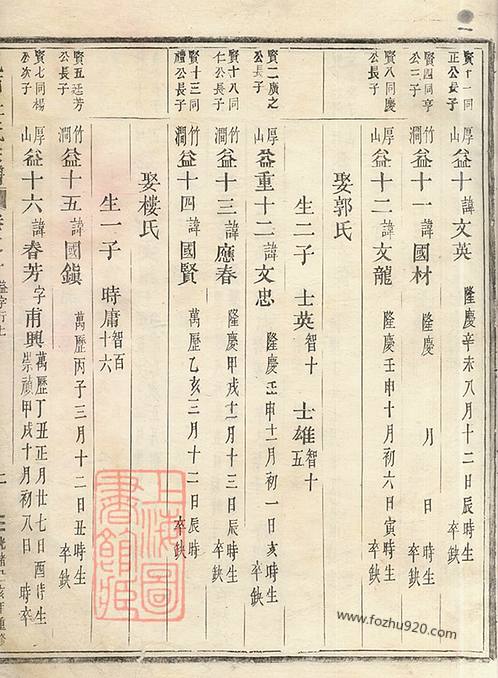 賢十一同
正公長子
厚山 益十 諱文英 隆慶辛未八月十二日辰時生 卒缺
賢四同亨
公二子
竹澗 益十一 諱國材 隆慶 月 日 時生 卒缺
賢八同慶
公長子
厚山 益十二 諱文龍 隆慶壬申十月初六日寅時生 卒缺
娶郭氏
生二子 士英智十 士雄智十五
賢二廣之
公長子
厚山 益重十二 諱文忠 隆慶壬申十一月初一日亥時生 卒缺
賢十八同
仁公長子
竹澗 益十三 諱應春 隆慶甲戌十一月十三日辰時生 卒缺
賢十三同
禮公長子
竹澗 益十四 諱國賢 萬歷乙亥三月十二日辰時生 卒缺
娶樓氏
生一子 時庸智百十六
賢五廷芳
公長子
竹澗 益十五 諱國鎮 萬歷丙子三月十二日丑時生 卒缺
賢七同楊
公次子
厚山 益十六 諱春芳 字甫興 萬歷丁丑正月廿七日酉時生
崇禎甲戌十月初八日 時卒
上海圖書館藏
www.fozhu920.com